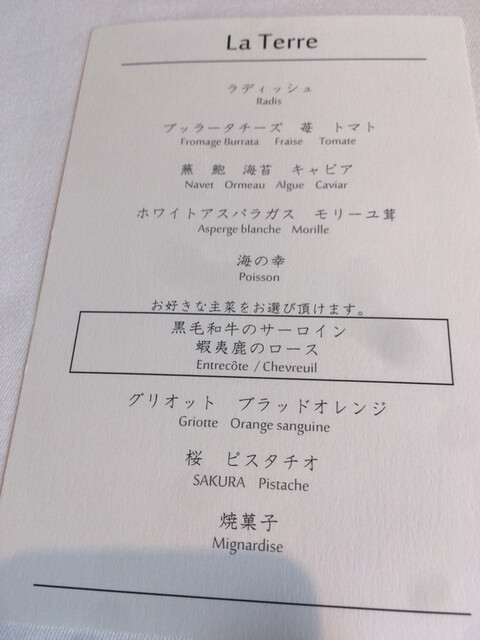 La Terre
ラディッシュ
Radis
ブッラータチーズ　苺　トマト
Fromage Burrata Fraise Tomate
蕪　鮑　海苔　キャビア
Navet Ormeau Algue Caviar
ホワイトアスパラガス　モリーユ茸
Asperge blanche Morille
海の幸
Poisson
お好きな主菜をお選び頂けます。
黒毛和牛のサーロイン
蝦夷鹿のロース
Entrecôte / Chevreuil
グリオット　ブラッドオレンジ
Griotte Orange sanguine
桜　ピスタチオ
SAKURA Pistache
焼菓子
Mignardise